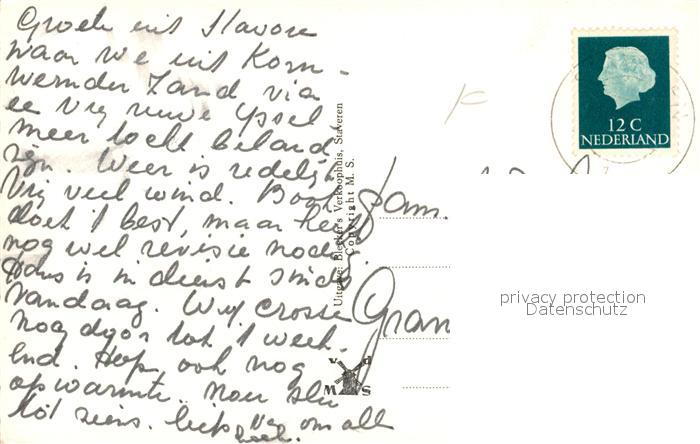 Groeten uit Stavoren
waar we uit Korn-
werder Zand via
ee vrij ruwe IJssel
meer tocht beland
zijn. Weer is redelijk
Vrij veel wind. Boot
doet 't best, maar
nog wel revisie nodig.
Hans is in dienst sinds
vandaag. Wij crossen
nog door tot 't week-
end. Hoop ook nog
op warmte. Nou
tot ziens. liefs van all
Fam.
Gran
Uitgave: Bleeker's Verkoophuis, Staveren
Copyright M. S.
v d
M S
12 C
NEDERLAND
privacy protection
Datenschutz